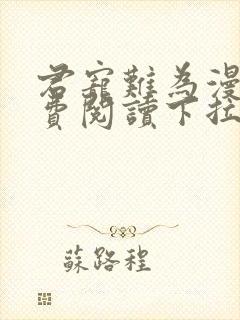 君寵難為漫
費閱讀下拉
蘇路程